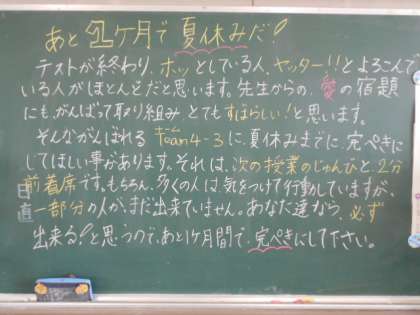 あと1ヶ月で夏休みだ!
テストが終わり、ホッとしている人、ヤッター!!とよろこんで
いる人がほとんどだと思います。先生からの、愛の宿題
にも、がんばって取り組み、とてもすばらしい!と思います。
そんながんばれる team4-3に、夏休みまでに、完ぺきに
チーム
してほしい事があります。それは、次の授業のじゅんびと、2分
前着席です。もちろん、多くの人は、気をつけて行動していますが、
一部分の人が、まだ出来ていません。あなた達なら、必ず
出来る!と思うので、あと1ヶ月間で、完ぺきにして下さい。
日直